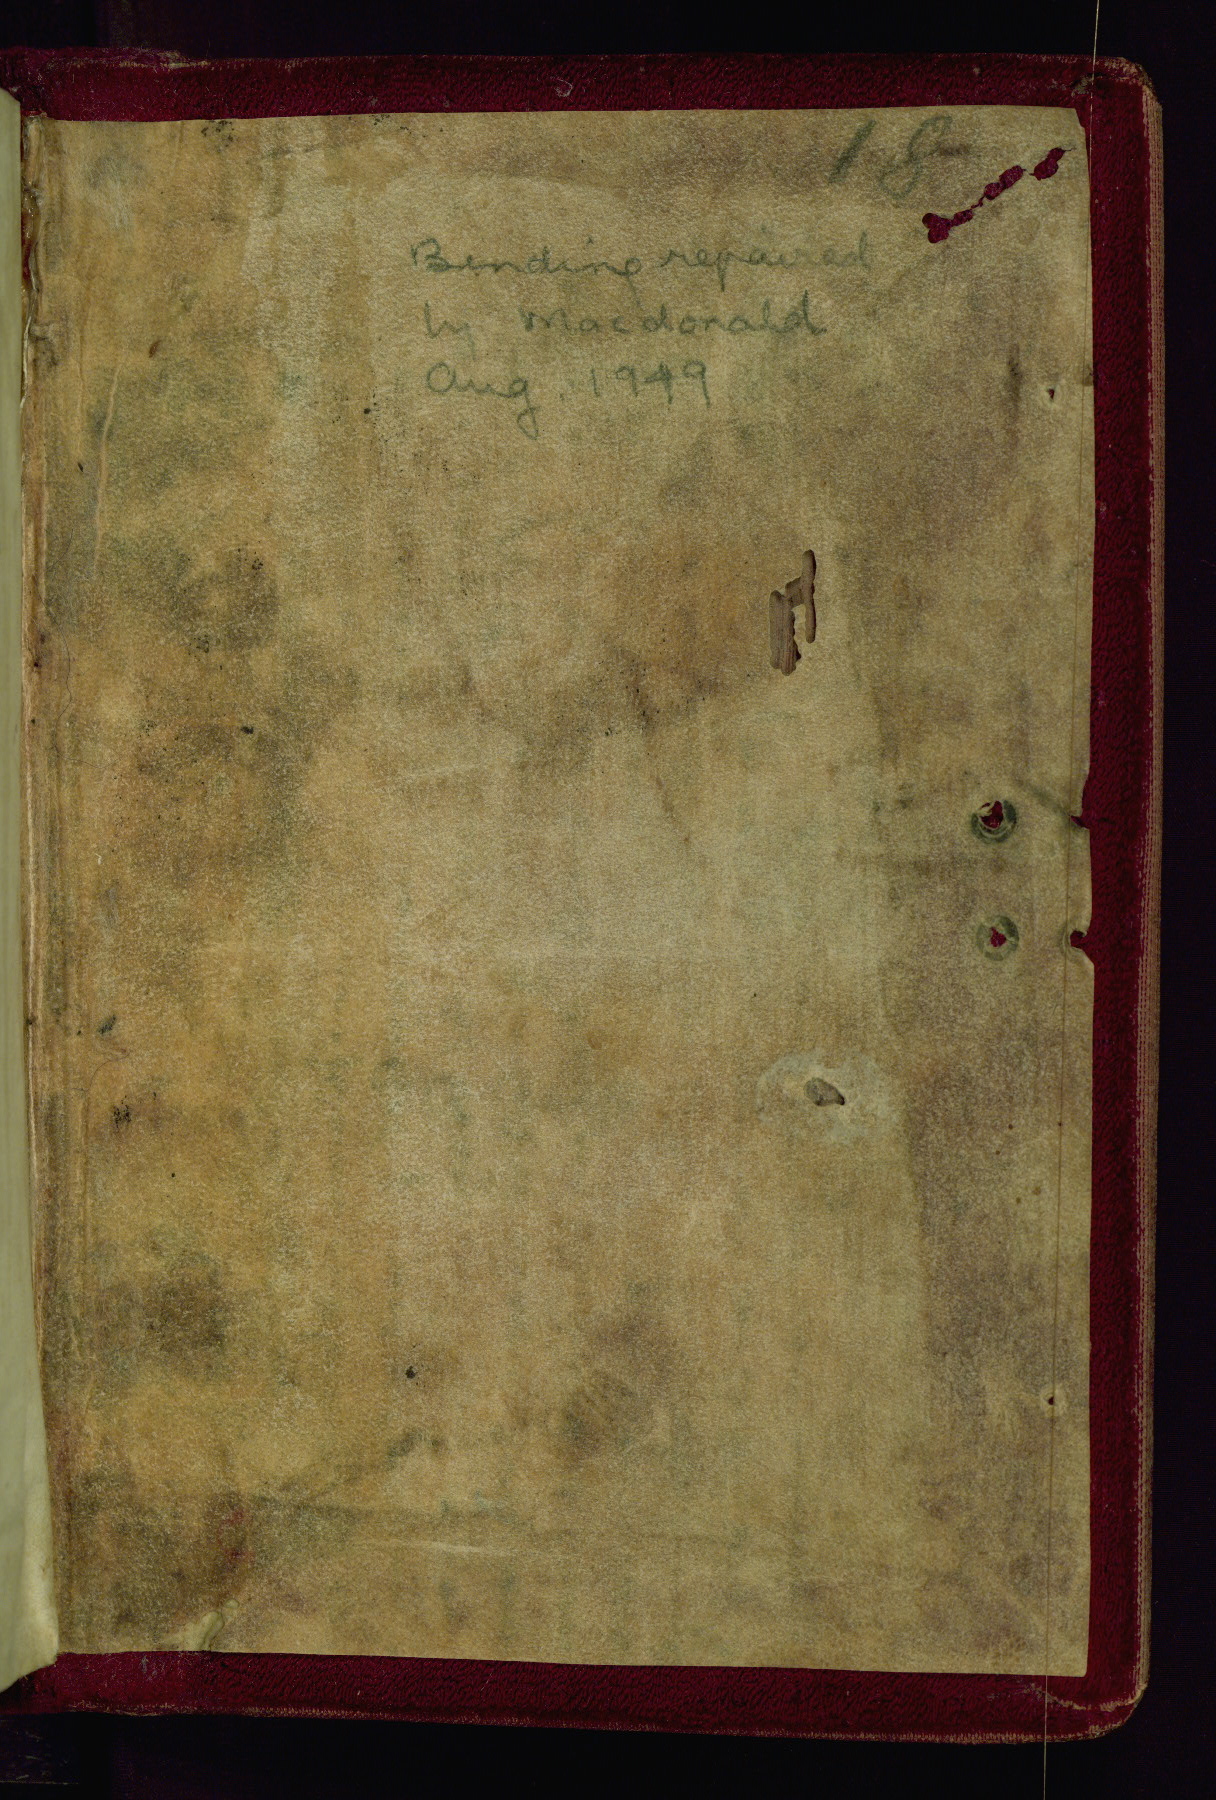 18
Binding repaired
by Macdonald
Aug. 1949